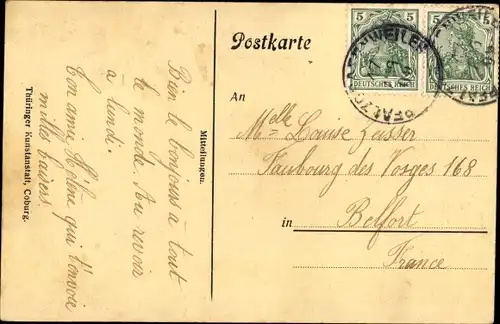 Postkarte
5 5 5
DEUTSCHES REICH
DEUTSCHES REICH
PFALZBURG
An
Melle Louise Zeisser
Faubourg des Vosges 168
in
Belfort
France
Mitteilungen.
Bien le bonjours à tout
le monde. Au revoir
à lundi.
Ton amie Hélène qui t'envoie
milles baisers
Thüringer Kunstanstalt, Coburg.